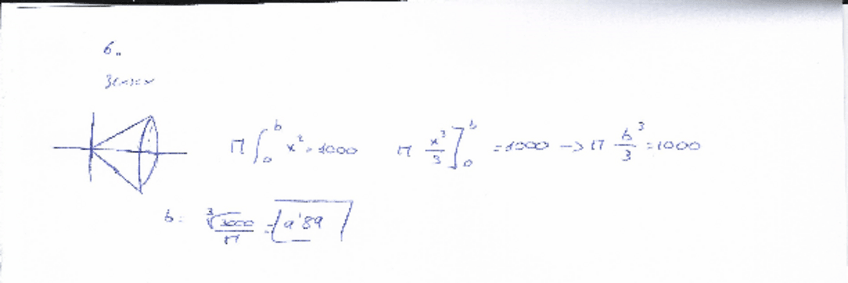 6.
π ∫₀ᵇ x² = 1000 π x³/3 ]₀ᵇ = 1000 → π b³/3 = 1000
b = ∛3000/π = 9'89